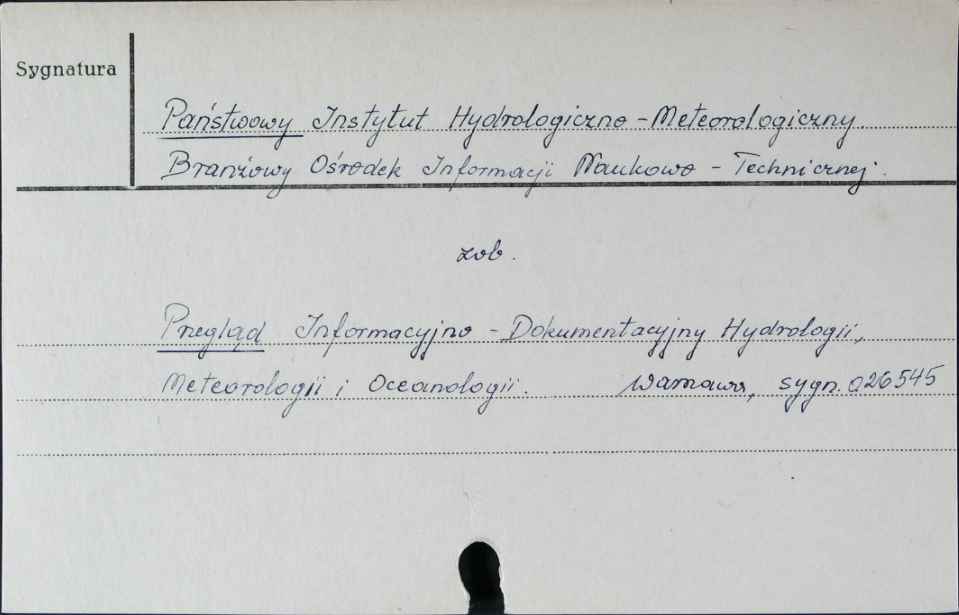 Sygnatura
Państwowy Instytut Hydrologiczno - Meteorologiczny.
Branżowy Ośrodek Informacji Naukowo - Technicznej.
zob.
Przegląd Informacyjno - Dokumentacyjny Hydrologii,
Meteorologii i Oceanologii. Warszawa, sygn. 026545